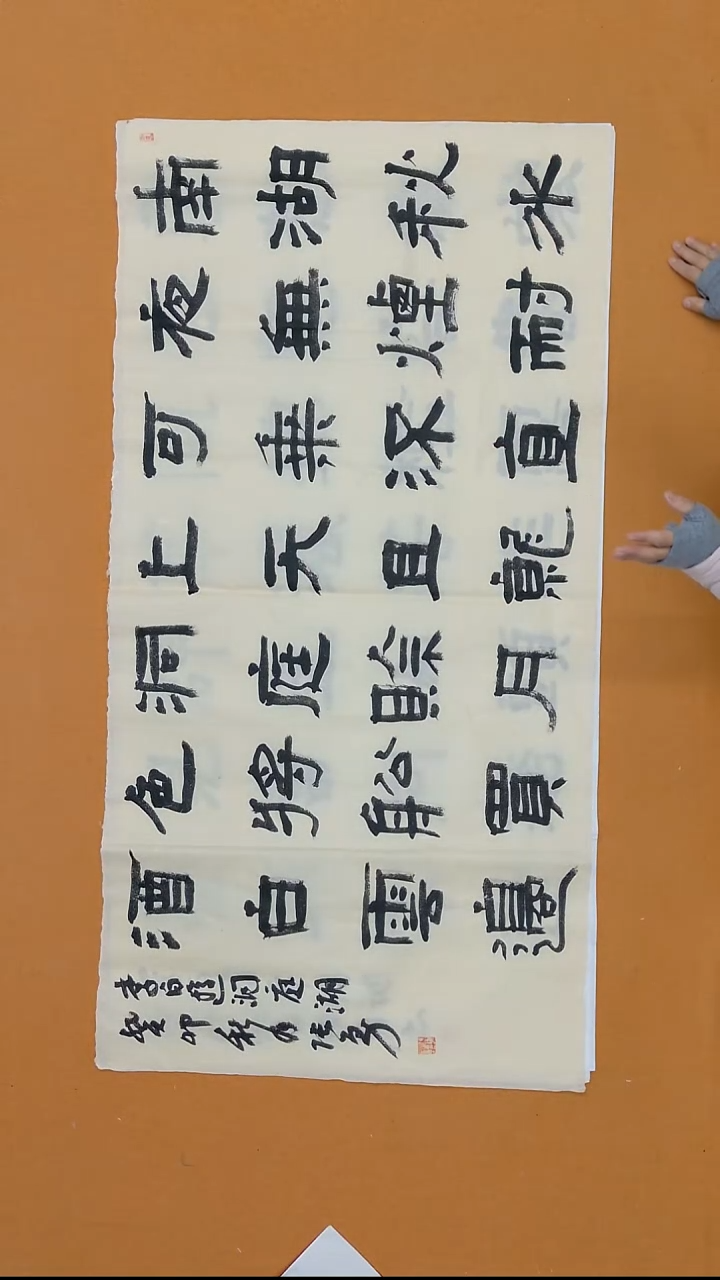 南湖秋水
夜無煙耐
可乘流直
上天且就
洞庭賒月
色將船買
酒白雲邊
李白遊洞庭湖
癸卯秋月